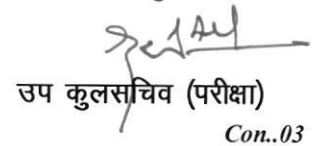 उप कुलसचिव (परीक्षा)
Con..03